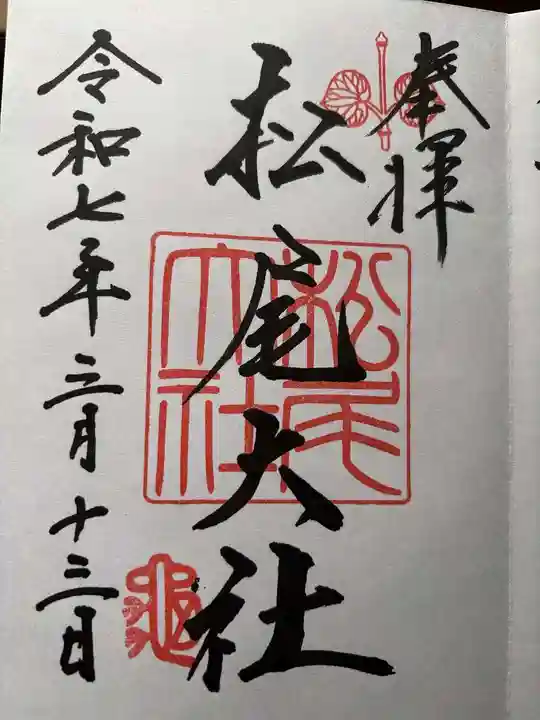 奉拝
松尾大社
松尾大社
亀
令和七年三月十三日